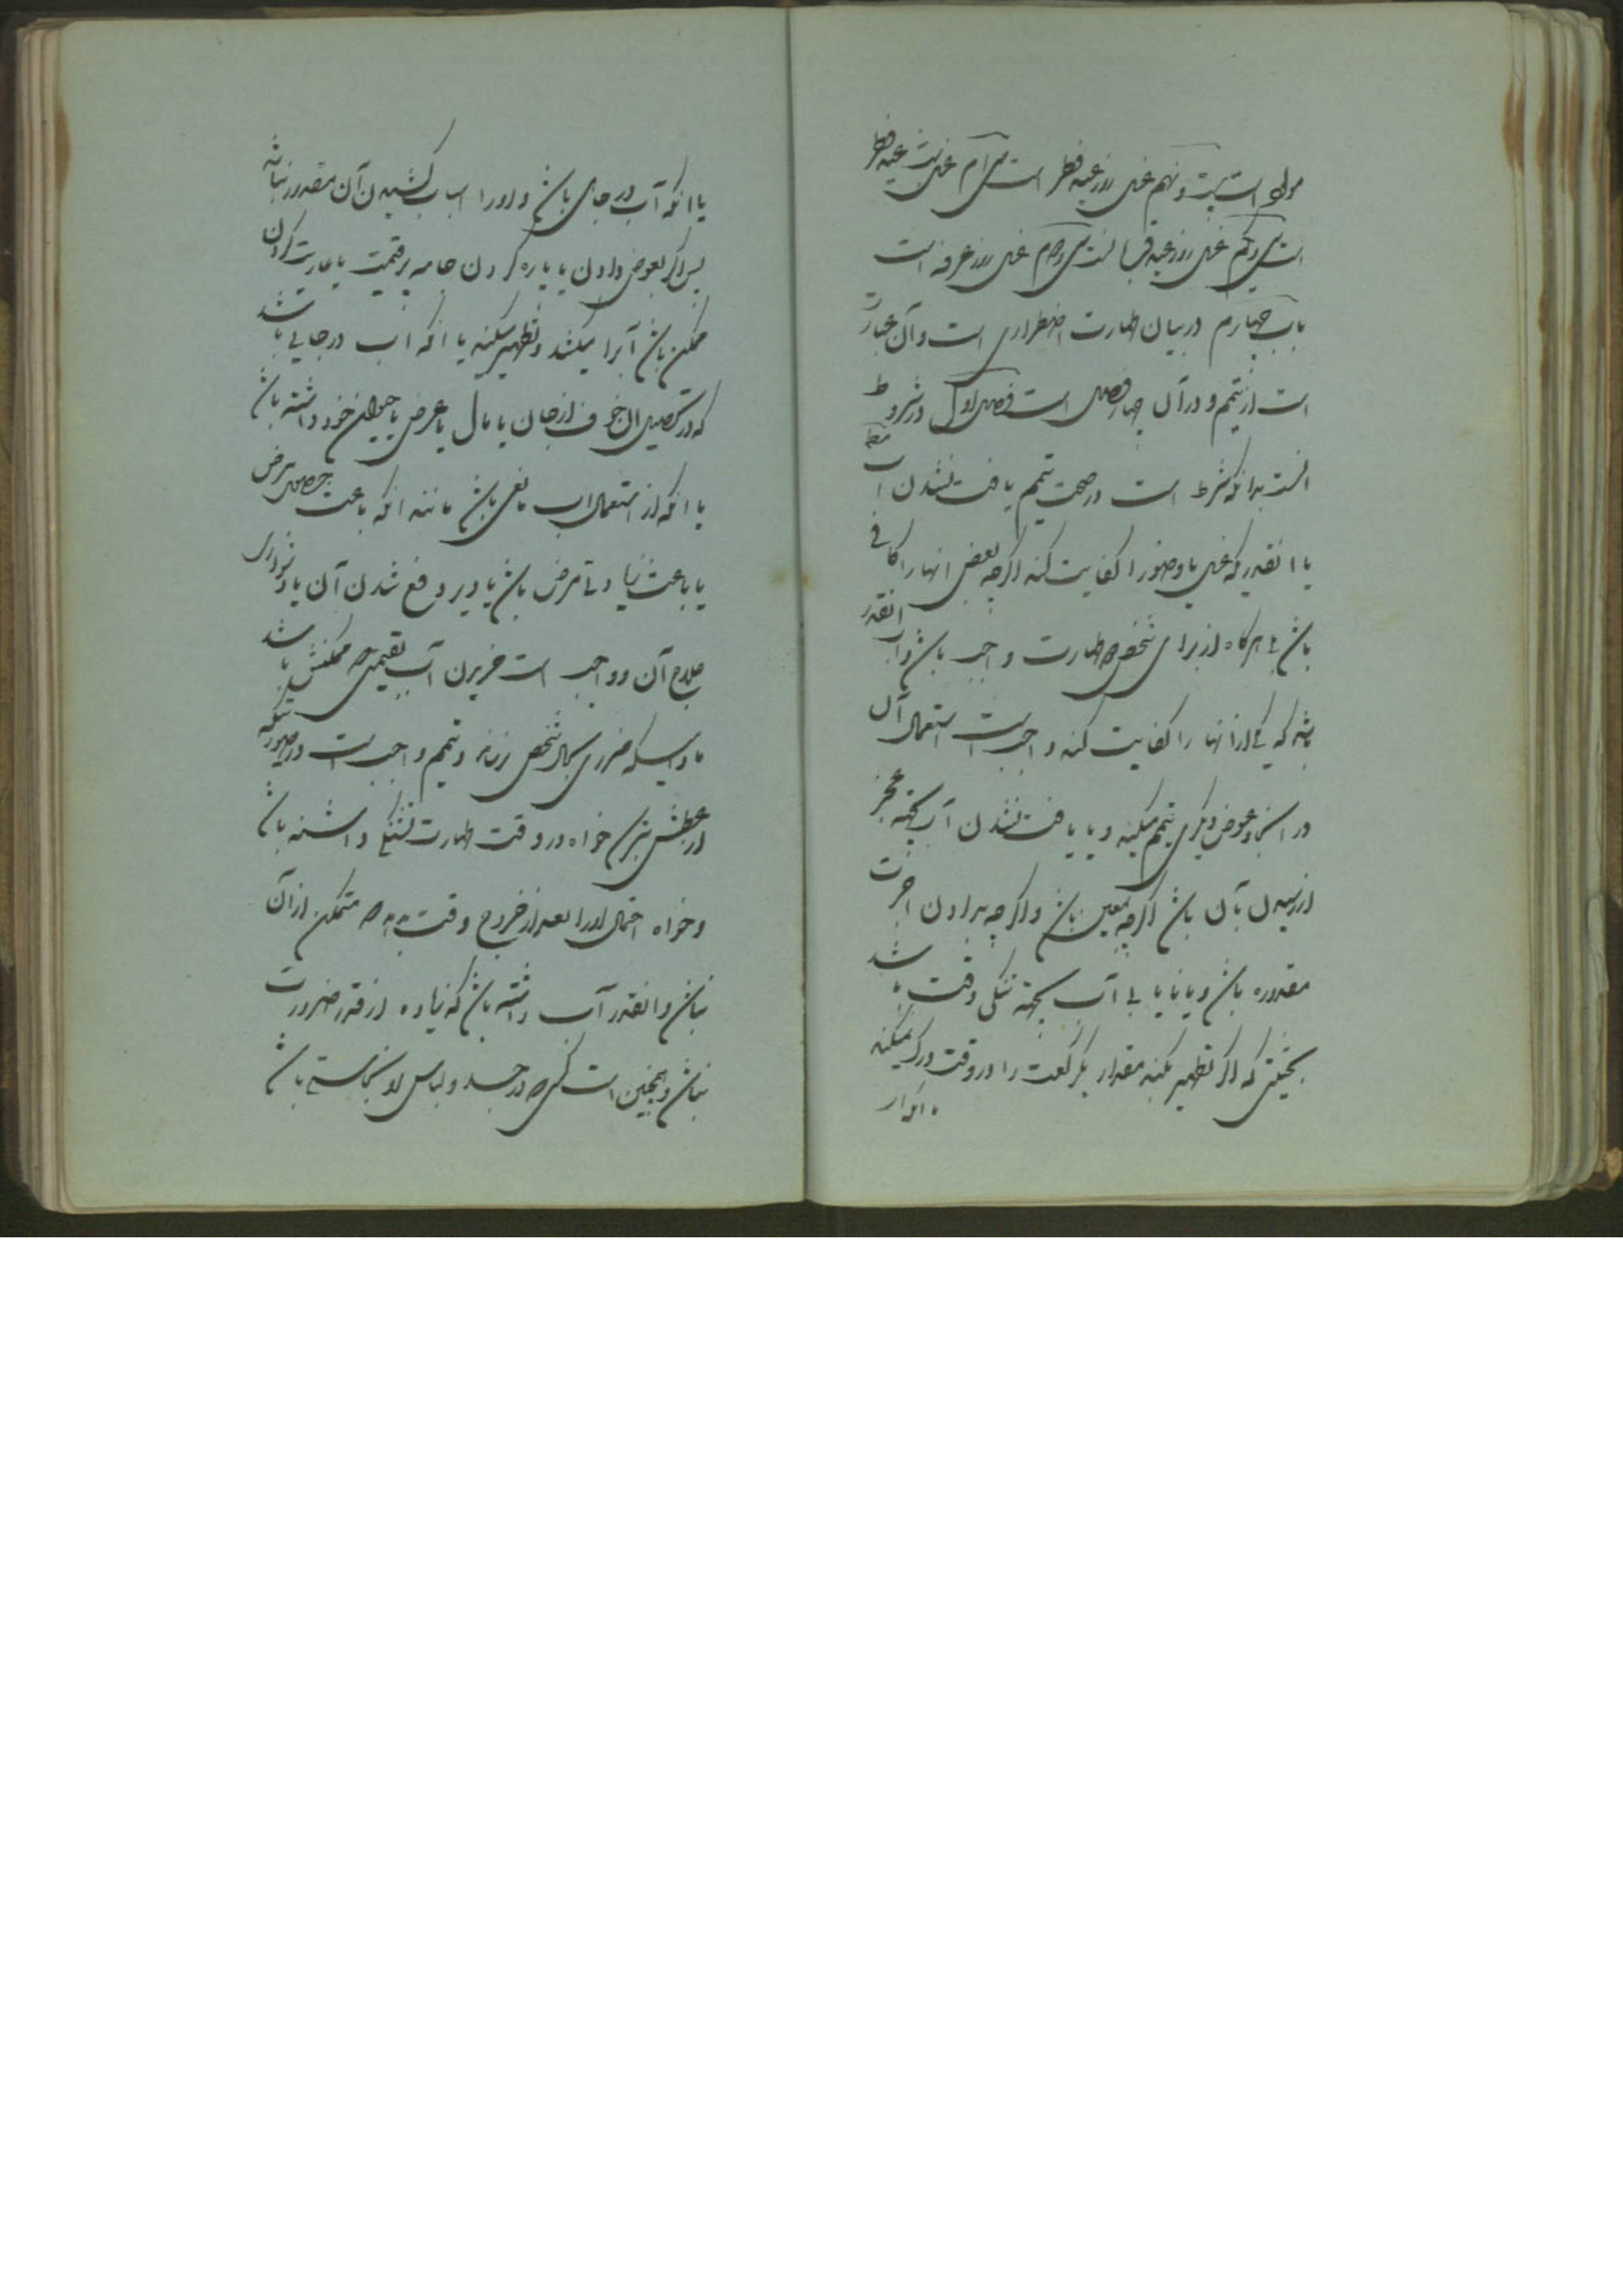 مولود است بیست و نهم غسل روز عید فطر است سی ام غسل شب عید فطر
است سی و یکم غسل روز عید قربانست سی و دوم غسل روز عرفه است
باب چهارم در بیان طهارت اضطراری است و آن عبارت
است از تیمم و در آن چهار فصل است فصل اول در شروط
انست بدانکه شرط است در صحت تیمم یافت نشدن آب
یا انقدر که غسل یا وضو را کفایت کند اگرچه بعض انها را کافی
باشد هرگاه از برای شخص طهارت واجب باشد و آب انقدر
باشد که یکی از انها را کفایت کند واجب است استعمال آن
در اینجا و عوض دیگری تیمم میکند و یا یافت نشدن آب بجهة عجز
از رسیدن بآن باشد اگرچه بمعین باشد و اگرچه بدادن اجرت
مقدوره باشد و یا نایابی آب بجهة تنگی وقت باشد
بحیثیتی که اگر تطهیر بکند مقدار یکرکعت را در وقت درک نمیکند
یا انکه آب در جای باشد و او را اسباب کشیدن آن مقدور نباشد
پس اگر بعوض دادن یا پاره کردن جامه پر قیمت یا عاریت کردن
ممکن باشد آنرا میکشد و تطهیر میکند یا انکه اب در جایی باشد
که در تحصیل ان خوف از جان یا مال یا عرض یا حیوان خود داشته باشد
یا انکه از استعمال اب مانعی باشد مانند انکه باعث حصول مرض
یا باعث زیادتی مرض باشد یا دیر دفع شدن آن یا دشواری
علاج آن و واجب است خریدن آب بقیمتی که ممکنش باشد
مادامیکه ضرری بحال شخص نرساند و تیمم واجب است در صورتیکه
از عطش بترسد خواه در وقت طهارت تشنگی داشته باشد
و خواه احتمال اورا بعد از خروج وقت بدهد که متمکن از آن
نباشد و انقدر آب داشته باشد که زیاده از قدر ضرورت
نباشد و همچنین است کسی که در جسد و لباس او نجاستی باشد